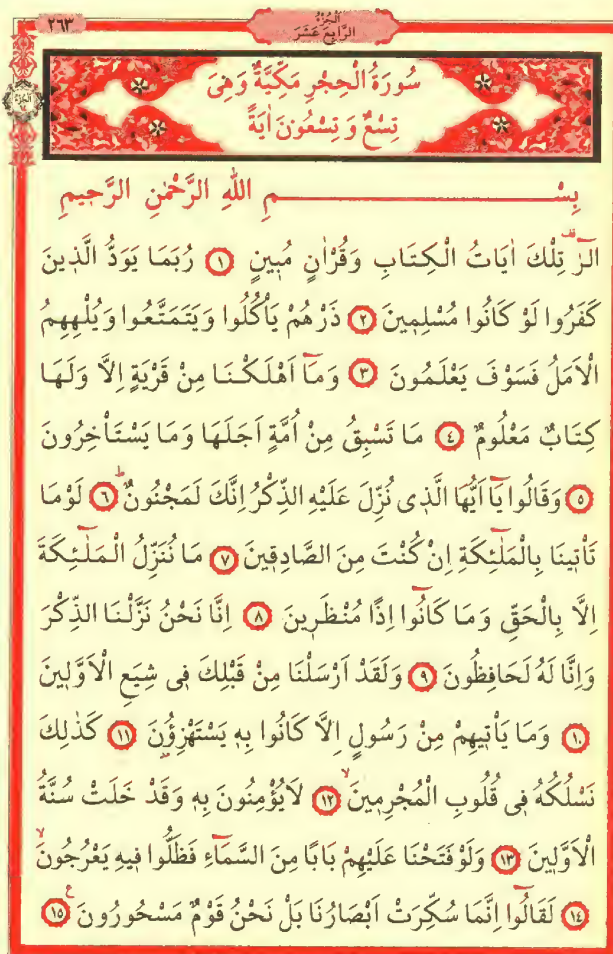 ٢٦٣
اَلْجُزْءُ
الرَّابِعَ عَشَرَ
سُورَةُ الْحِجْرِ مَكِّيَّةٌ وَهِىَ
تِسْعٌ وَ تِسْعُونَ اٰيَةً
بِسْــــــــــــــمِ اللّٰهِ الرَّحْمٰنِ الرَّحٖيمِ
الٓرٰ ࣞ تِلْكَ اٰيَاتُ الْكِتَابِ وَقُرْاٰنٍ مُبٖينٍ ﴿١﴾ رُبَمَا يَوَدُّ الَّذٖينَ
كَفَرُوا لَوْ كَانُوا مُسْلِمٖينَ ﴿٢﴾ ذَرْهُمْ يَاْكُلُوا وَيَتَمَتَّعُوا وَيُلْهِهِمُ
الْاَمَلُ فَسَوْفَ يَعْلَمُونَ ﴿٣﴾ وَمَٓا اَهْلَكْنَا مِنْ قَرْيَةٍ اِلَّا وَلَهَا
كِتَابٌ مَعْلُومٌ ﴿٤﴾ مَا تَسْبِقُ مِنْ اُمَّةٍ اَجَلَهَا وَمَا يَسْتَاْخِرُونَ
﴿٥﴾ وَقَالُوا يَٓا اَيُّهَا الَّذٖى نُزِّلَ عَلَيْهِ الذِّكْرُ اِنَّكَ لَمَجْنُونٌ ؕ ﴿٦﴾ لَوْمَا
تَاْتٖينَا بِالْمَلٰٓئِكَةِ اِنْ كُنْتَ مِنَ الصَّادِقٖينَ ﴿٧﴾ مَا نُنَزِّلُ الْمَلٰٓئِكَةَ
اِلَّا بِالْحَقِّ وَمَا كَانُٓوا اِذًا مُنْظَرٖينَ ﴿٨﴾ اِنَّا نَحْنُ نَزَّلْنَا الذِّكْرَ
وَاِنَّا لَهُ لَحَافِظُونَ ﴿٩﴾ وَلَقَدْ اَرْسَلْنَا مِنْ قَبْلِكَ فٖى شِيَعِ الْاَوَّلٖينَ
﴿١٠﴾ وَمَا يَاْتٖيهِمْ مِنْ رَسُولٍ اِلَّا كَانُوا بِهٖ يَسْتَهْزِؤُنَ ﴿١١﴾ كَذٰلِكَ
نَسْلُكُهُ فٖى قُلُوبِ الْمُجْرِمٖينَ ۙ ﴿١٢﴾ لَايُؤْمِنُونَ بِهٖ وَقَدْ خَلَتْ سُنَّةُ
الْاَوَّلٖينَ ﴿١٣﴾ وَلَوْفَتَحْنَا عَلَيْهِمْ بَابًا مِنَ السَّمَٓاءِ فَظَلُّوا فٖيهِ يَعْرُجُونَ ۙ
﴿١٤﴾ لَقَالُٓوا اِنَّمَا سُكِّرَتْ اَبْصَارُنَا بَلْ نَحْنُ قَوْمٌ مَسْحُورُونَ ࣖ ﴿١٥﴾